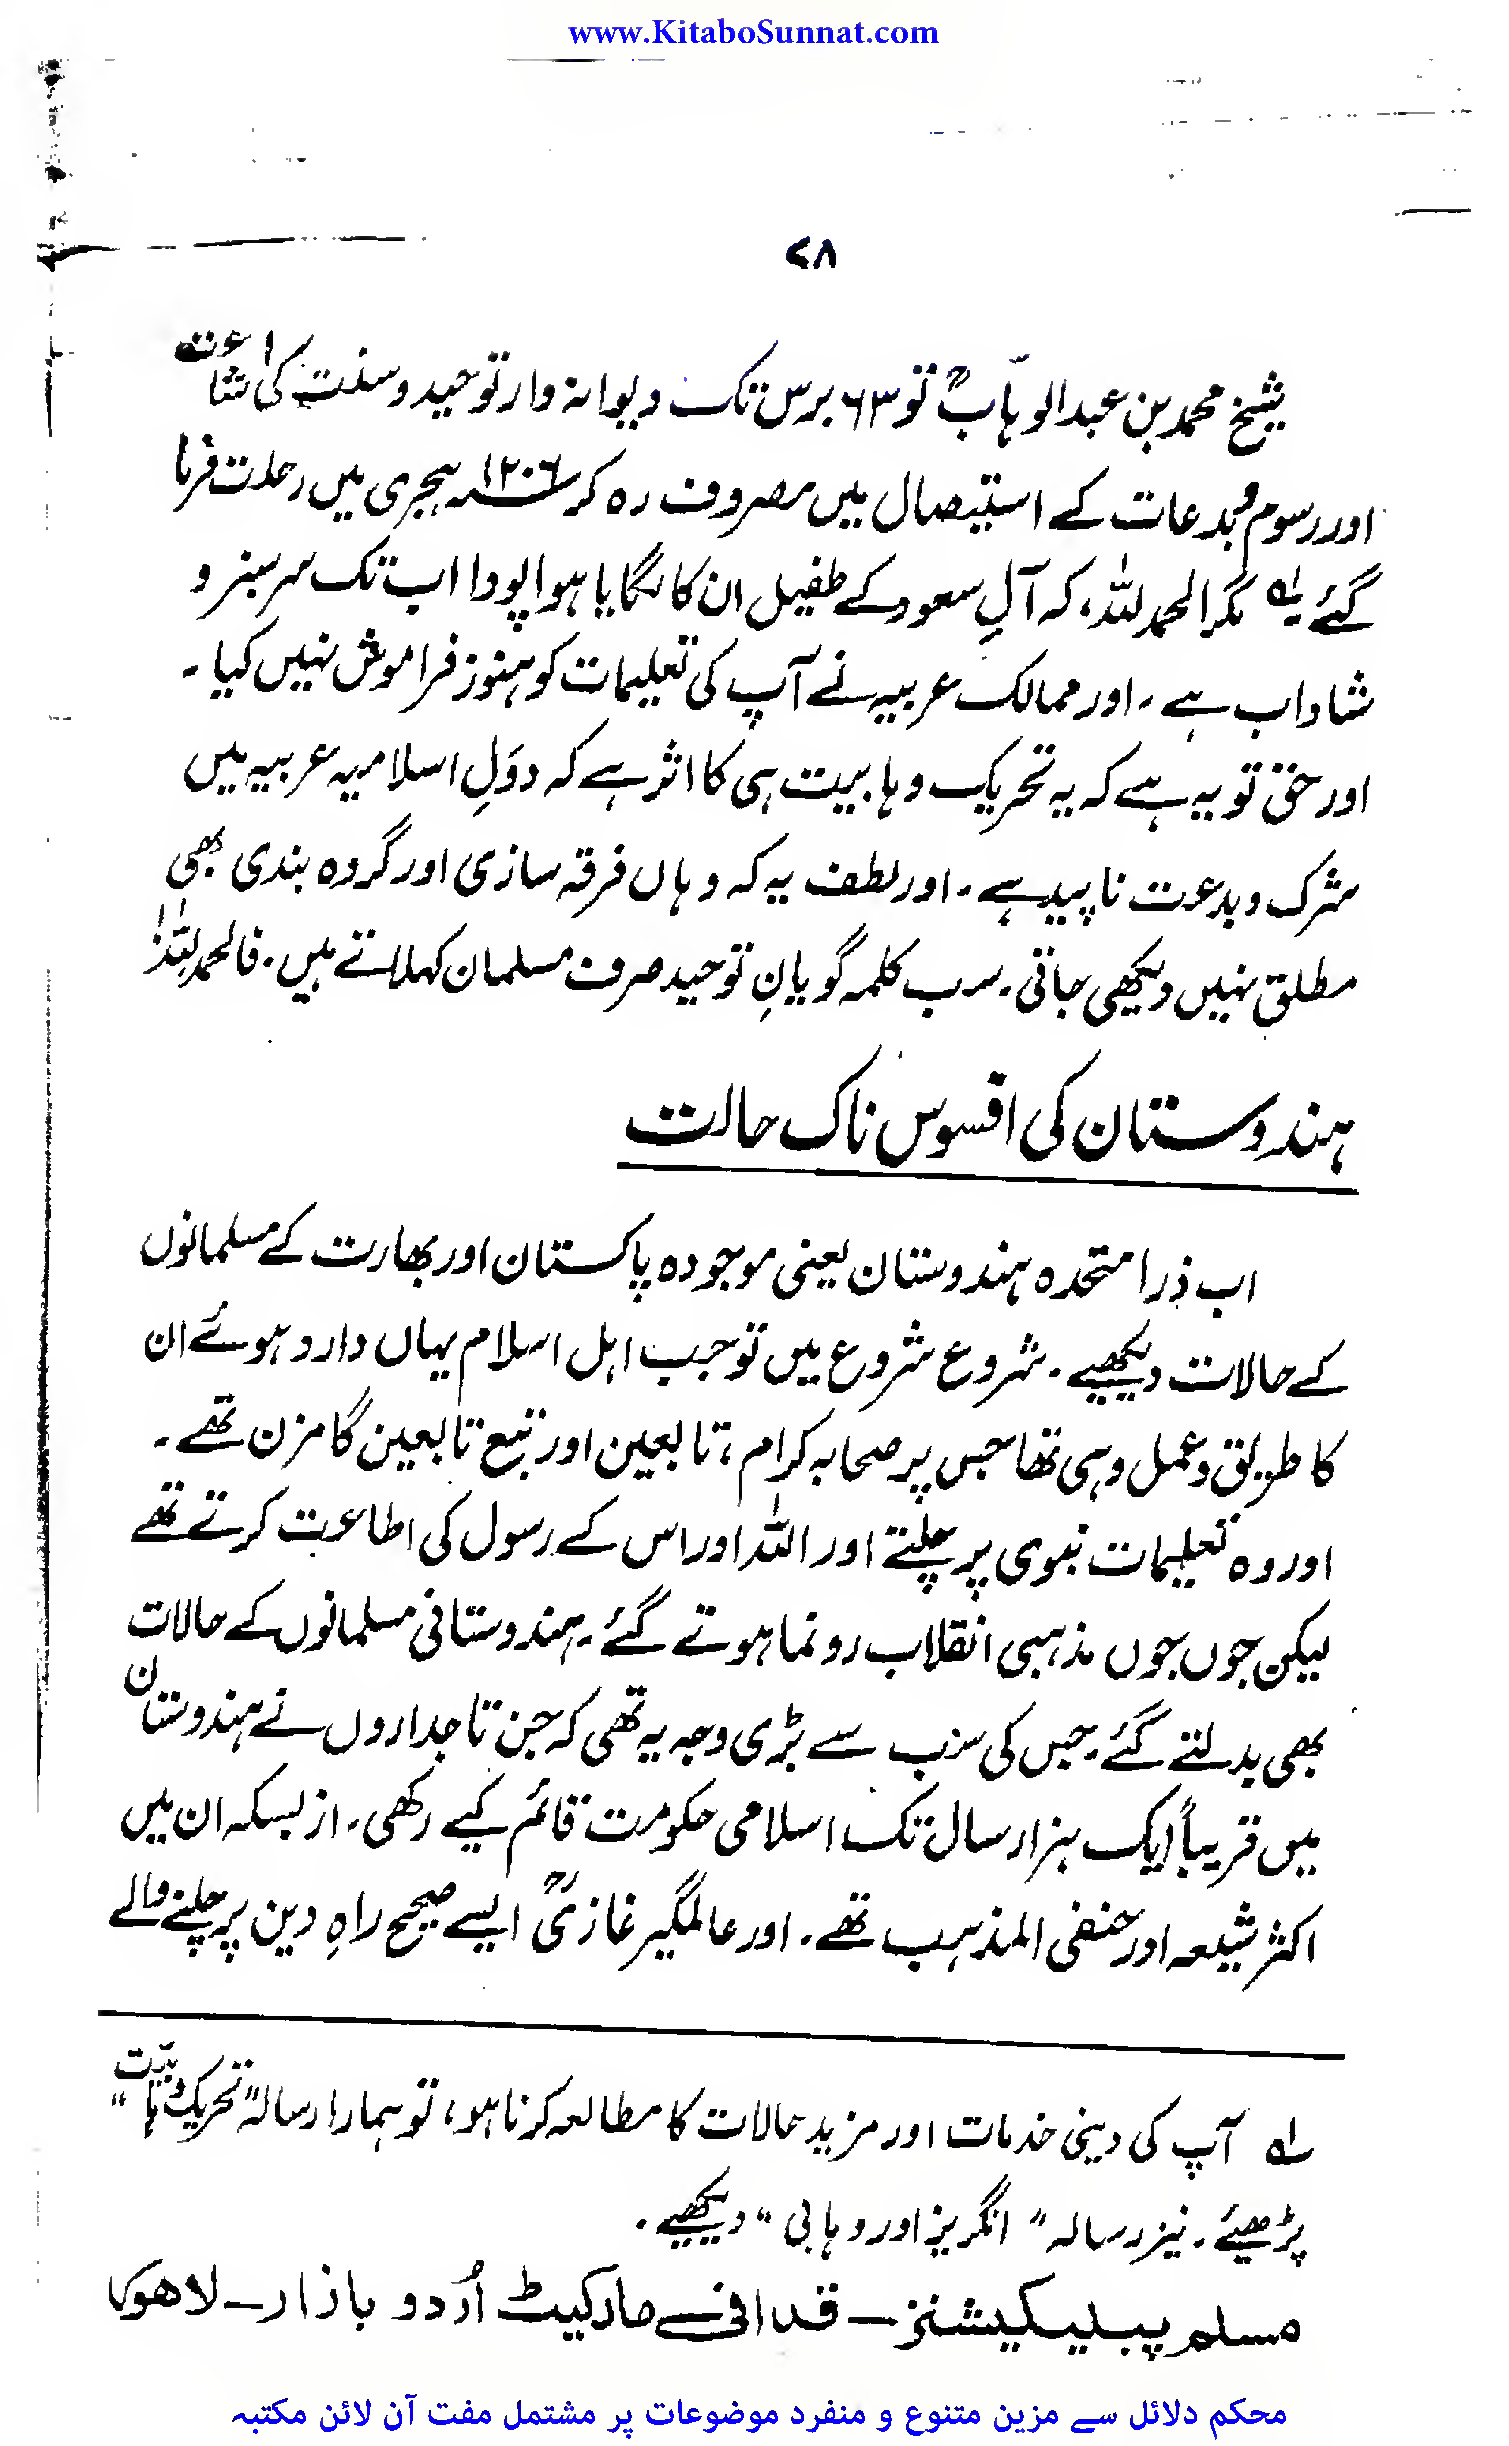 www.KitaboSunnat.com
۷۸
شیخ محمد بن عبدالوہابؒ تو ۶۳ برس تک دیوانہ وار توحید و سنت کی اشاعت
اور رسوم و بدعات کے استیصال میں مصروف رہ کر ۱۲۰۶؁ ہجری میں رحلت فرما
گئے لہ مگر الحمد للہ، کہ آلِ سعود کے طفیل ان کا لگایا ہوا پودا اب تک سرسبز و
شاداب ہے۔ اور ممالک عربیہ نے آپ کی تعلیمات کو ہنوز فراموش نہیں کیا۔
اور حق تو یہ ہے کہ یہ تحریک وہابیت ہی کا اثر ہے کہ دوَلِ اسلامیہ عربیہ میں
شرک و بدعت ناپید ہے۔ اور لطف یہ کہ وہاں فرقہ سازی اور گروہ بندی بھی
مطلق نہیں دیکھی جاتی۔ سب کلمہ گویانِ توحید صرف مسلمان کہلاتے ہیں۔ فالحمد للہ!
ہندوستان کی افسوس ناک حالت
اب ذرا متحدہ ہندوستان یعنی موجودہ پاکستان اور بھارت کے مسلمانوں
کے حالات دیکھیے۔ شروع شروع میں تو جب اہل اسلام یہاں وارد ہوئے ان
کا طریق و عمل وہی تھا جس پر صحابہ کرام، تابعین اور تبع تابعین گامزن تھے۔
اور وہ تعلیمات نبوی پر چلتے اور اللہ اور اس کے رسول کی اطاعت کرتے تھے
لیکن جوں جوں مذہبی انقلاب رونما ہوتے گئے۔ ہندوستانی مسلمانوں کے حالات
بھی بدلتے گئے۔ جس کی سب سے بڑی وجہ یہ تھی کہ جن تاجداروں نے ہندوستان
میں قریباً ایک ہزار سال تک اسلامی حکومت قائم کیے رکھی۔ از بسکہ ان میں
اکثر شیعہ اور حنفی المذہب تھے۔ اور عالمگیر غازیؒ ایسے صحیح راہِ دین پر چلنے والے
لہ آپ کی دینی خدمات اور مزید حالات کا مطالعہ کرنا ہو، تو ہمارا رسالہ "تحریک وہابیّت"
پڑھیئے۔ نیز رسالہ "انگریز اور وہابی" دیکھیے۔
مسلم پبلیکیشنز – قدافی مارکیٹ اُردو بازار – لاہور
محکم دلائل سے مزین متنوع و منفرد موضوعات پر مشتمل مفت آن لائن مکتبہ